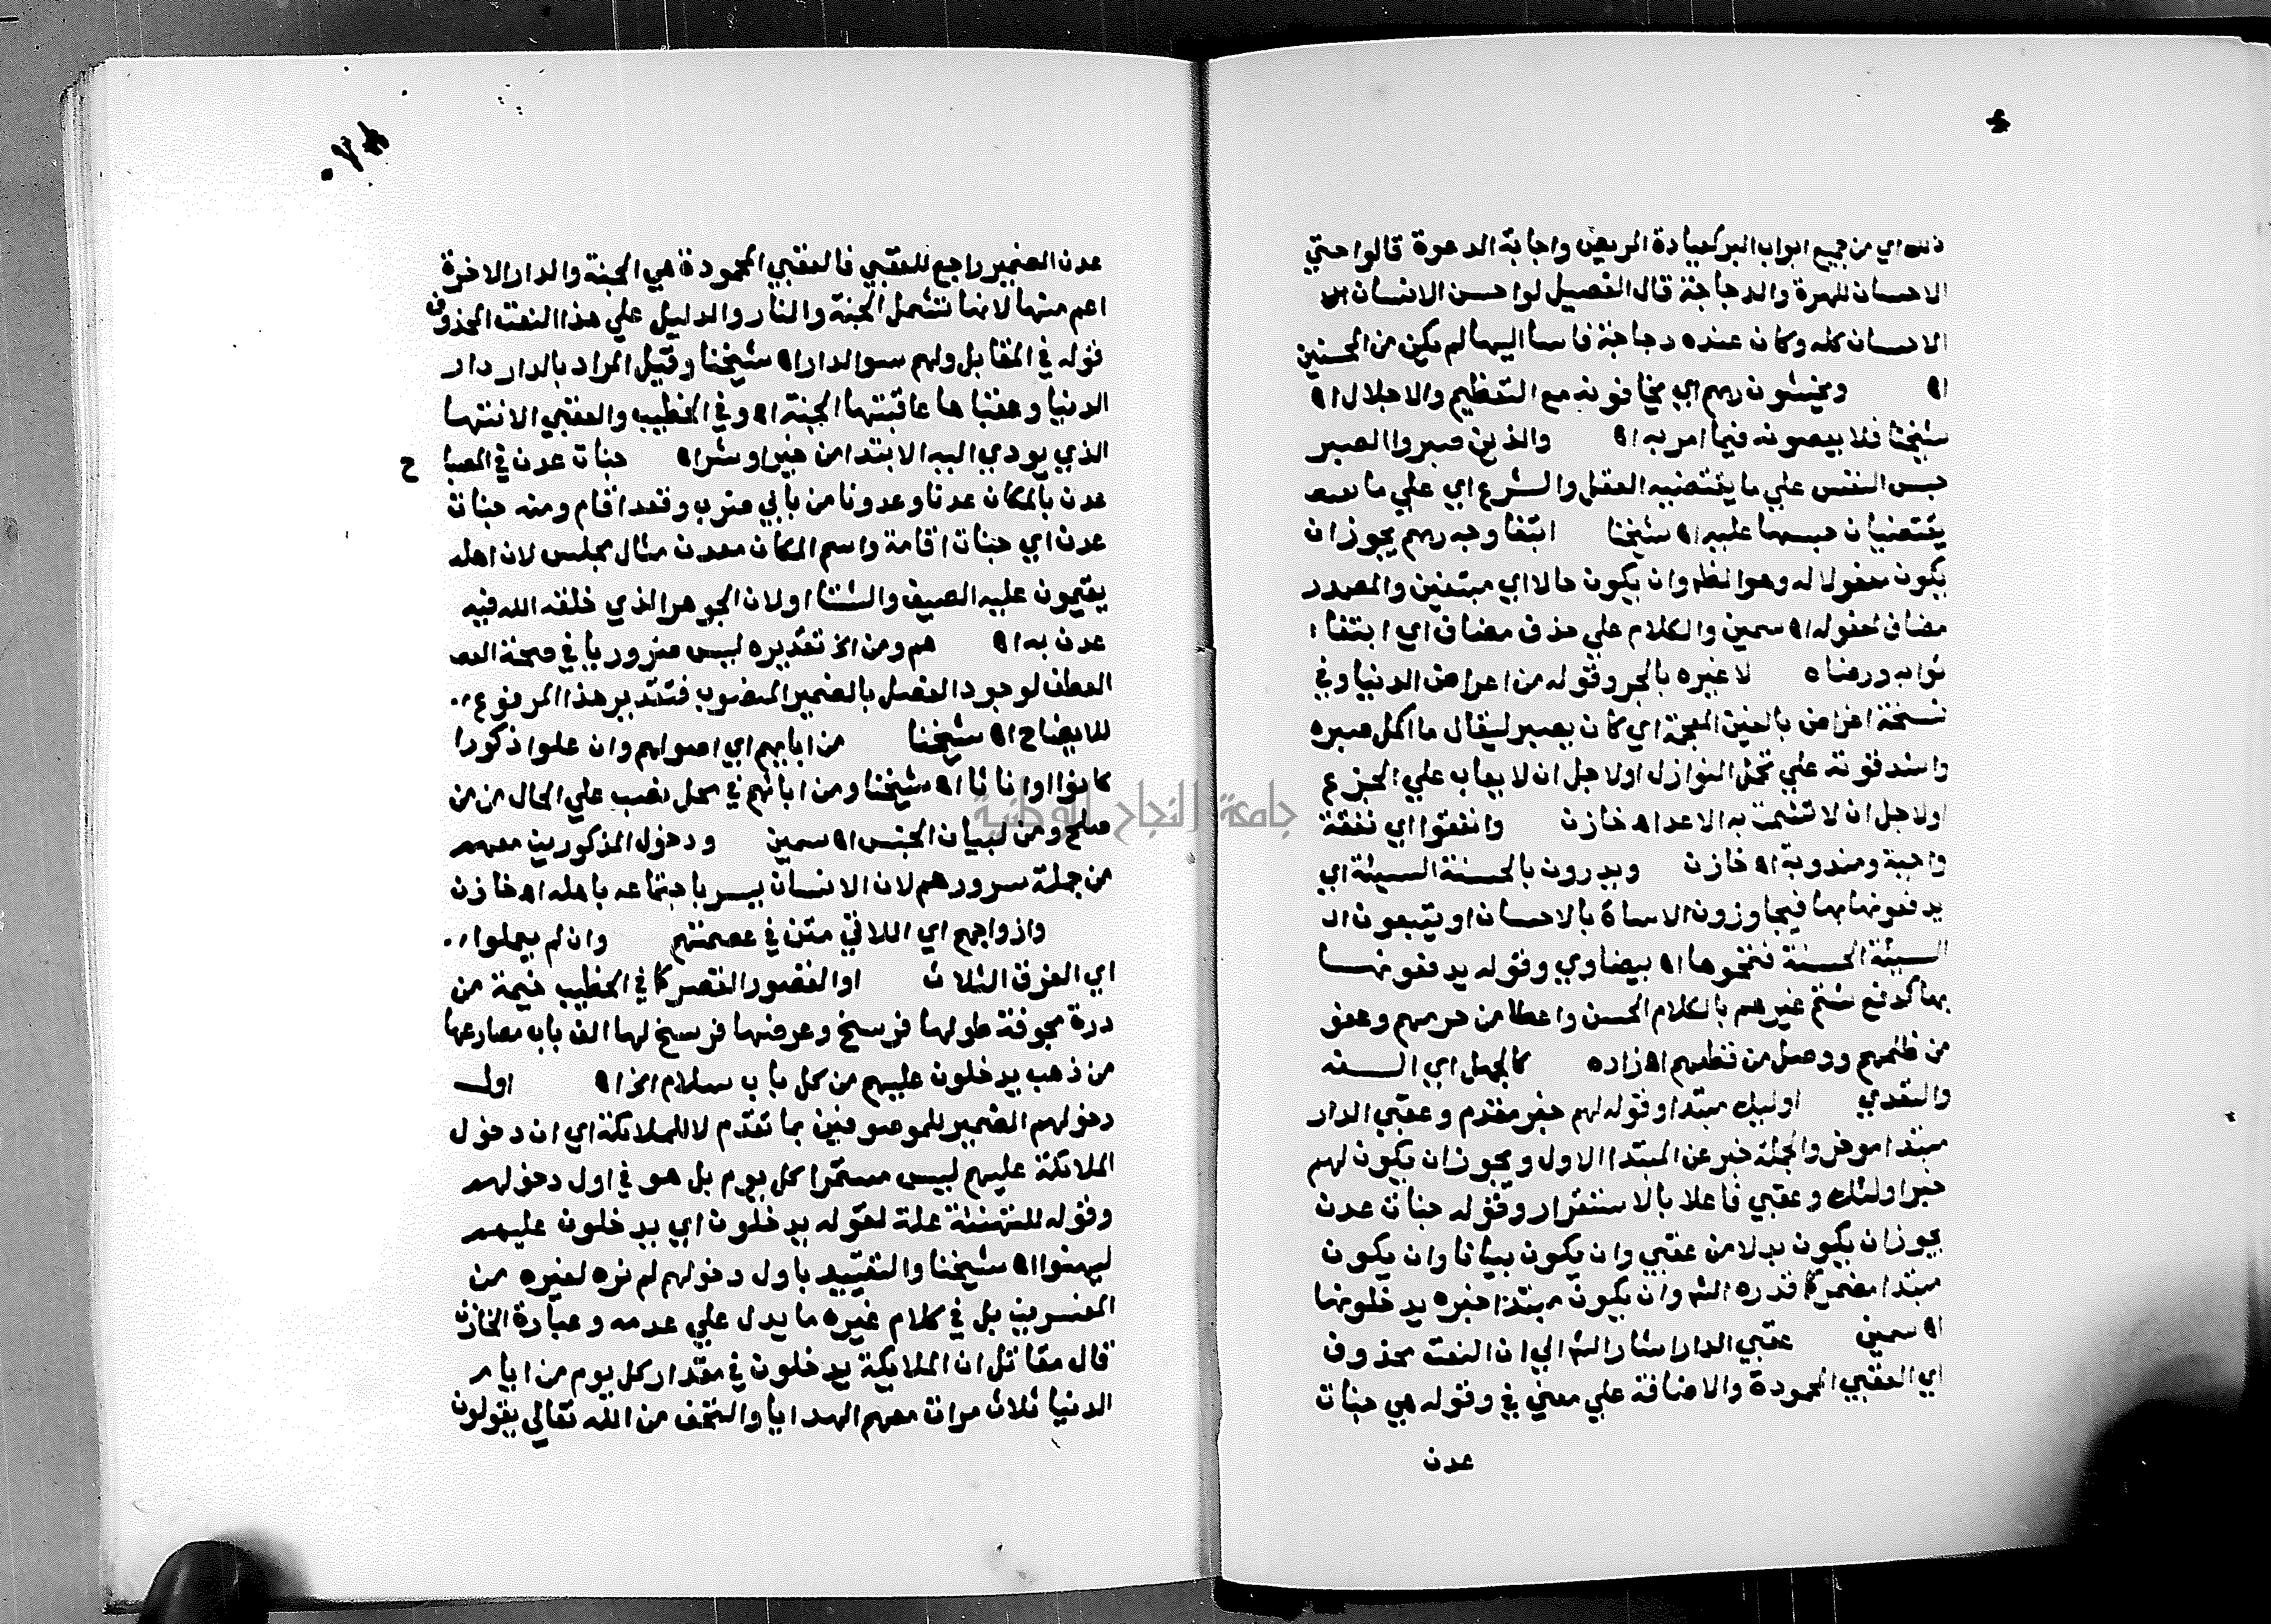 ذلك اي من جميع ابواب البر كعيادة المريض واجابة الدعوة قالوا حتي
الاحسان للهرة والدجاجة قال الفضيل لو احسن الانسان
الاحسان كله وكان عنده دجاجة فاسا اليها لم يكن من المحسنين
اه ويخشون ربهم اي يخافونه مع التعظيم والاجلال اه
شيخنا فلا يعصونه فيما امر به اه والذين صبروا الصبر
حبس النفس علي ما يقتضيه العقل والشرع اي علي ما
يقتضيان حبسها عليه اه شيخنا ابتغا وجه ربهم يجوز ان
يكون مفعولا له وهو الظ وان يكون حالا اي مبتغين والمصدر
مضاف لمفوله اه سمين والكلام علي حذف مضاف اي ابتغاء
ثوابه ورضاه لا غيره بالجر وقوله من اعراض الدنيا وفي
نسخة اغراض بالغين المعجمة اي كان يصبر ليقال ما اكمل صبره
واشد قوته علي تحمل النوازل اولاجل ان لا يعاب علي الجزع
اولاجل ان لا تشمت به الاعدا اه خازن وانفقوا اي نفقة
واجبة ومندوبة اه خازن ويدرون بالحسنة السيئة اي
يدفعونها بها فيجاوزون الاساة بالاحسان او يتبعون ال
السيئة الحسنة فتمحوها اه بيضاوي وقوله يدفعونها
بها كدفع شتم غيرهم بالكلام الحسن واعطا من حرمهم وعفو
من ظلمهم ووصل من قطعهم اه زاده كالجهل اي السفه
والتعدي اوليك مبتدا وقوله لهم خبر مقدم وعقبي الدار
مبتدا موخر والجملة خبر عن المبتدا الاول ويجوز ان يكون لهم
خبر اولئك وعقبي فاعلا بالاستقرار وقوله جنات عدن
يجوز ان يكون بدلا من عقبي وان يكون بيانا وان يكون
مبتدا مضمر كما قدره الش وان يكون مبتدا خبره يدخلونها
اه سمين عقبي الدار اشار الش الي ان النعت محذوف
اي العقبي المحمودة والاضافة علي معني في وقوله هي جنات
عدن
عدن الضمير راجع للعقبي فالعقبي المحمودة هي الجنة والدار الاخرة
اعم منها لانها تشمل الجنة والنار والدليل علي هذا النعت المحذوف
قوله في المقابل ولهم سو الدار اه شيخنا وقيل المراد بالدار دار
الدنيا وعقباها عاقبتها الجنة اه وفي الخطيب والعقبي الانتها
الذي يودي اليه الابتدا من خير او شر اه جنات عدن في المصبا ح
عدن بالمكان عدنا وعدونا من بابي ضرب وقعد اقام ومنه جنات
عدن اي جنات اقامة واسم المكان معدن مثال مجلس لان اهله
يقيمون عليه الصيف والشتا اولان الجوهر الذي خلقه الله فيه
عدن به اه هم ومن الخ تقديره ليس ضروريا في صحة العط
العطف لوجود الفصل بالضمير المنصوب فتقدير هذا المرفوع
للايضاح اه شيخنا من ابايهم اي اصولهم وان علوا ذكورا
كانوا او اناثا اه شيخنا ومن ابائهم في محل نصب علي الحال من من
صلح ومن لبيان الجنس اه سمين ودخول المذكورين معهم
من جملة سرورهم لان الانسان يسر باجتماعه باهله اه خازن
وازواجهم اي اللاتي متن في عصمتهم وان لم يعملوا
اي الفرق الثلاث او القصور القصر كما في الخطيب خيمة من
درة مجوفة طولها فرسخ وعرضها فرسخ لها الف باب مصارعها
من ذهب يدخلون عليهم من كل باب سلام الخ اه اول
دخولهم الضمير للموصوفين بما تقدم لا للملائكة اي ان دخول
الملائكة عليهم ليس مستمرا كل يوم بل هو في اول دخولهم
وقوله للتهنئة علة لقوله يدخلون اي يدخلون عليهم
ليهنوا اه شيخنا والتقييد باول دخولهم لم نره لغيره من
المفسرين بل في كلام غيره ما يدل علي عدمه وعبارة الخازن
قال مقاتل ان الملايكة يدخلون في مقدار كل يوم من ايام
الدنيا ثلاث مرات معهم الهدايا والتحف من الله تعالي يقولون
جامعة النجاح الوطنية